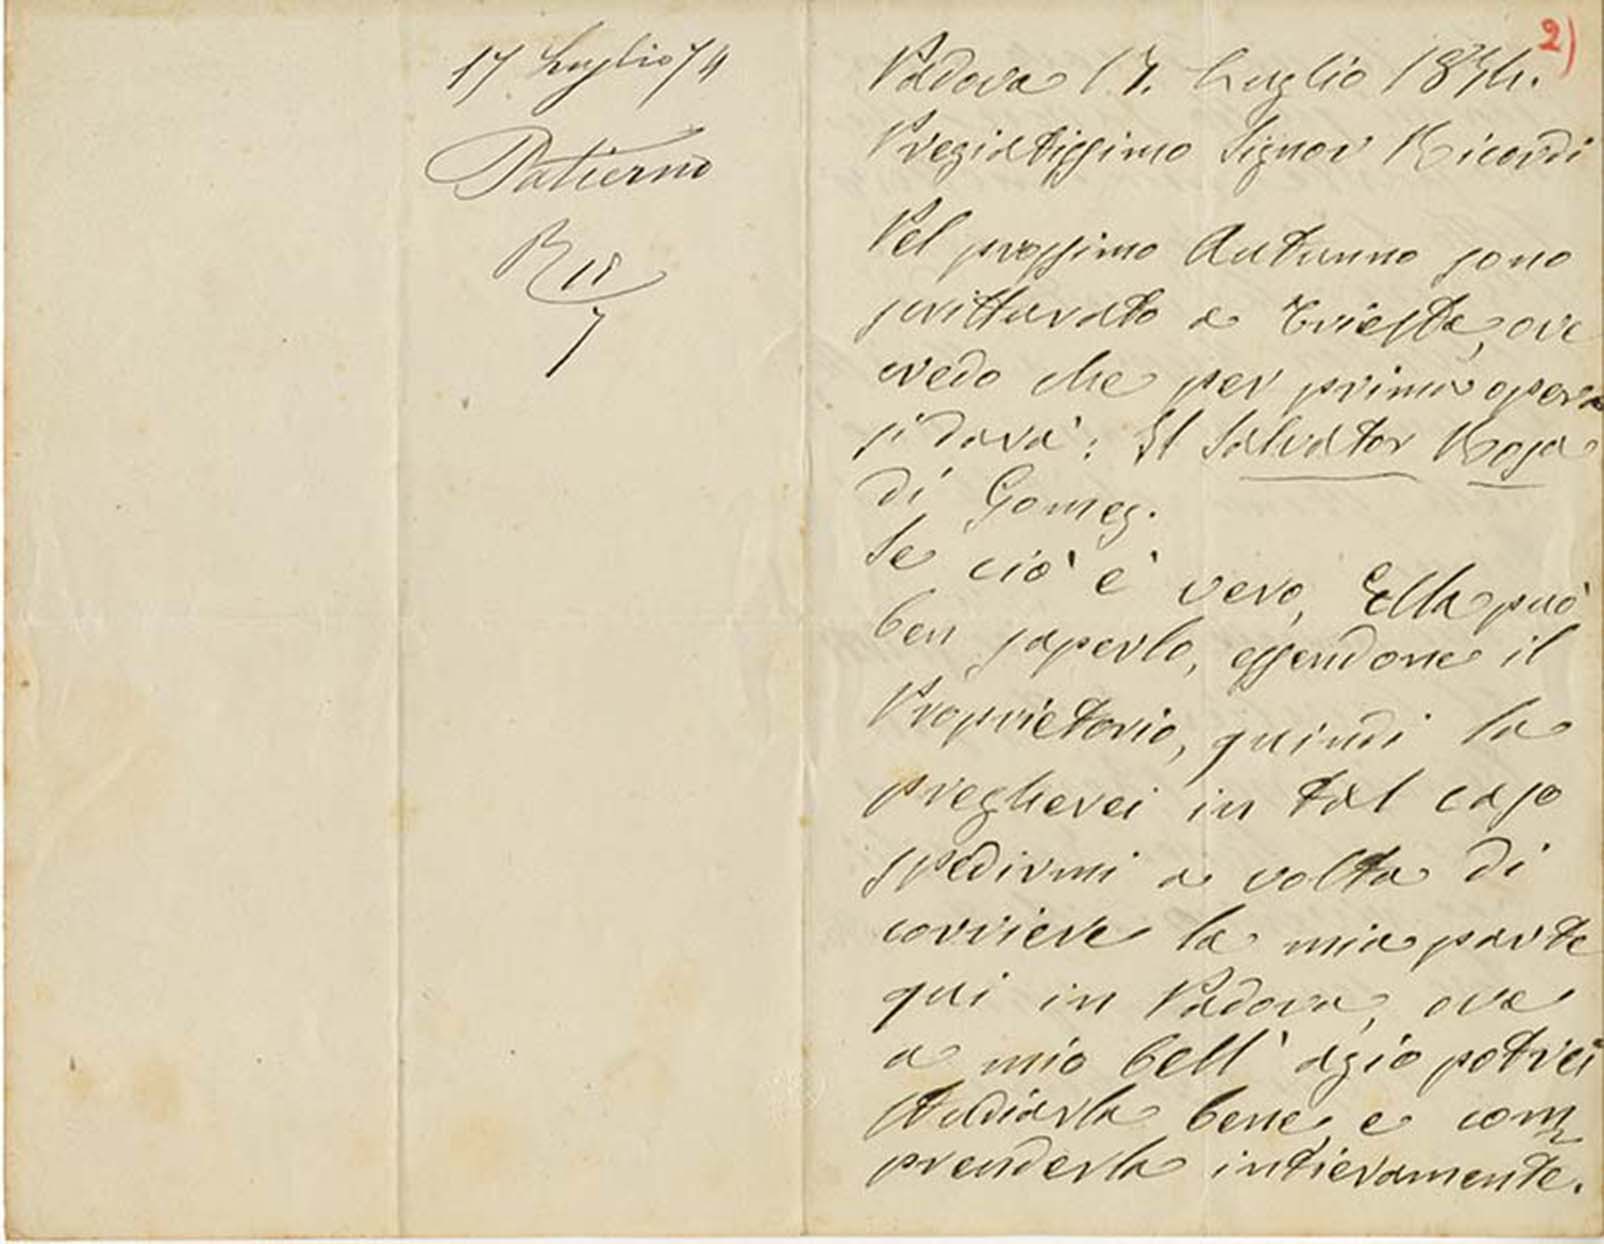 17 Luglio 74
Patierno
R 18
7
2)
Padova 17. Luglio 1874.
Pregiatissimo Signor Ricordi
Nel prossimo Autunno sono
scritturato a Trieste, ove
credo che per prima opera
si darà: Il Salvator Rosa
di Gomez.
Se ciò è vero, Ella può
ben saperlo, essendone il
Proprietario, quindi la
pregherei in tal caso
spedirmi a volta di
corriere la mia parte
qui in Padova, ove
a mio bell' agio potrei
studiarla bene, e com
prenderla intieramente.